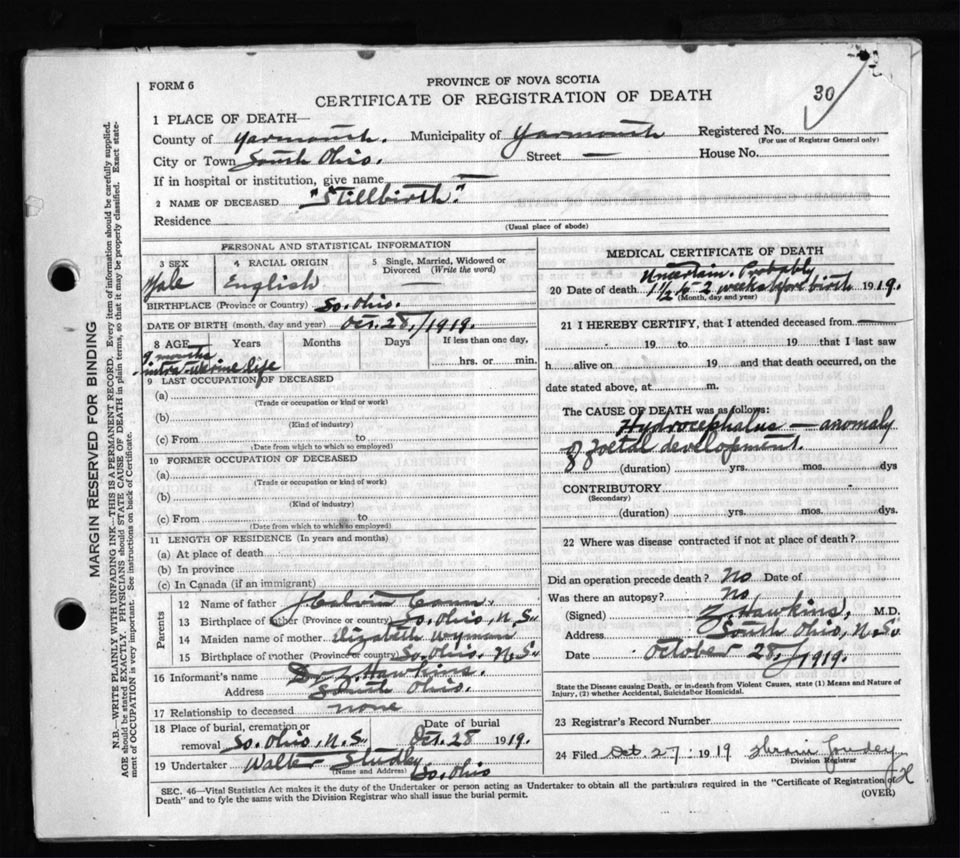 FORM 6
PROVINCE OF NOVA SCOTIA
CERTIFICATE OF REGISTRATION OF DEATH
30
1 PLACE OF DEATH—
County of Yarmouth. Municipality of Yarmouth Registered No.
(For use of Registrar General only)
City or Town South Ohio. Street — House No.
If in hospital or institution, give name —
2 NAME OF DECEASED "Stillbirth."
Residence
(Usual place of abode)
PERSONAL AND STATISTICAL INFORMATION
3 SEX 4 RACIAL ORIGIN 5 Single, Married, Widowed or Divorced (Write the word)
Male English —
BIRTHPLACE (Province or Country) So. Ohio.
DATE OF BIRTH (month, day and year) Oct. 28, 1919.
8 AGE Years Months Days If less than one day,
hrs. or min.
9 months
intra-uterine life
9 LAST OCCUPATION OF DECEASED
(a)
(Trade or occupation or kind or work)
(b)
(Kind of industry)
(c) From to
(Date from which to which so employed)
10 FORMER OCCUPATION OF DECEASED
(a)
(Trade or occupation or kind of work)
(b)
(Kind of industry)
(c) From to
(Date from which to which so employed)
11 LENGTH OF RESIDENCE (In years and months)
(a) At place of death
(b) In province
(c) In Canada (if an immigrant)
Parents
12 Name of father Calvin Cann.
13 Birthplace of father (Province or country) So. Ohio, N.S.
14 Maiden name of mother Elizabeth Wyman
15 Birthplace of mother (Province or country) So. Ohio. N.S.
16 Informant's name Dr. Z. Hawkins.
Address South Ohio.
17 Relationship to deceased none
18 Place of burial, cremation or removal So. Ohio, N.S. Date of burial Oct. 28 1919.
19 Undertaker Walter Studley So. Ohio
(Name and Address)
MEDICAL CERTIFICATE OF DEATH
Uncertain. Probably
20 Date of death 1 1/2 to 2 weeks before birth 1919.
(Month, day and year)
21 I HEREBY CERTIFY, that I attended deceased from —
19 to 19 that I last saw
h alive on 19 and that death occurred, on the
date stated above, at m.
The CAUSE OF DEATH was as follows:
Hydrocephalus — anomaly
of foetal development.
(duration) yrs. mos. dys
CONTRIBUTORY
(Secondary)
(duration) yrs. mos. dys.
22 Where was disease contracted if not at place of death?
Did an operation precede death? No Date of
Was there an autopsy? No,
(Signed) Z. Hawkins, M.D.
Address South Ohio, N.S.
Date October 28, 1919.
State the Disease causing Death, or in death from Violent Causes, state (1) Means and Nature of
Injury, (2) whether Accidental, Suicidal or Homicidal.
23 Registrar's Record Number
24 Filed Oct 27 1919
Division Registrar
SEC. 46—Vital Statistics Act makes it the duty of the Undertaker or person acting as Undertaker to obtain all the particulars required in the "Certificate of Registration of
Death" and to fyle the same with the Division Registrar who shall issue the burial permit.
(OVER)
MARGIN RESERVED FOR BINDING
N.B.—WRITE PLAINLY WITH UNFADING INK—THIS IS A PERMANENT RECORD. Every item of information should be carefully supplied.
AGE should be stated EXACTLY. PHYSICIANS should STATE CAUSE OF DEATH in plain terms, so that it may be properly classified. Exact state-
ment of OCCUPATION is very important. See instructions on back of Certificate.